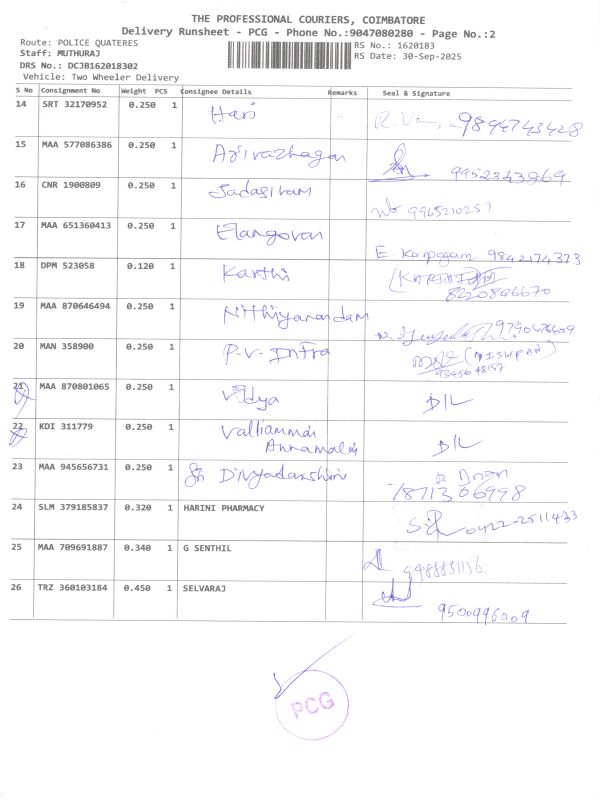 THE PROFESSIONAL COURIERS, COIMBATORE
Delivery Runsheet - PCG - Phone No.:9047080280 - Page No.:2
Route: POLICE QUATERES RS No.: 1620183
Staff: MUTHURAJ RS Date: 30-Sep-2025
DRS No.: DCJB162018302
Vehicle: Two Wheeler Delivery
S No Consignment No Weight PCS Consignee Details Remarks Seal & Signature
14 SRT 32170952 0.250 1 Hari 9894743428
15 MAA 577086386 0.250 1 Arivazhagan 9952343869
16 CNR 1900809 0.250 1 Sadasivam 9965210257
17 MAA 651360413 0.250 1 Elangovan E. Karpagam 9842174373
18 DPM 523058 0.120 1 Karthi 8220866670
19 MAA 870646494 0.250 1 Nithiyanandam 9790476409
20 MAN 358900 0.250 1 P.V. Infra 9345648157
21 MAA 870801065 0.250 1 Vidya D/L
22 KDI 311779 0.250 1 Valliammai Annamalai D/L
23 MAA 945656731 0.250 1 Divyadarshini 7871306998
24 SLM 379185837 0.320 1 HARINI PHARMACY 0422-2511433
25 MAA 709691887 0.340 1 G SENTHIL
26 TRZ 360103184 0.450 1 SELVARAJ 9500996009
PCG